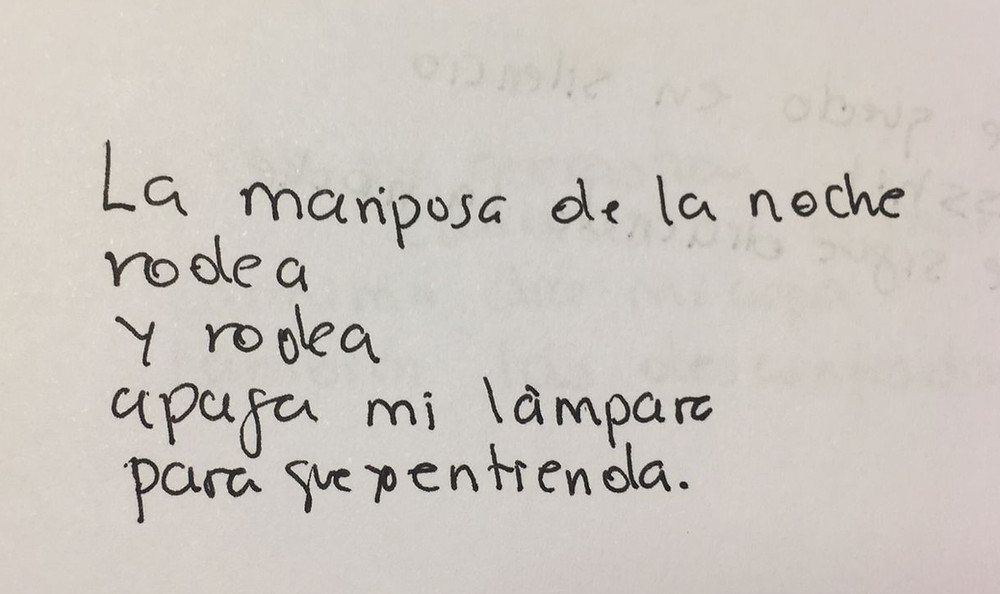 La mariposa de la noche
rodea
y rodea
apaga mi làmpara
para que yo entienda.